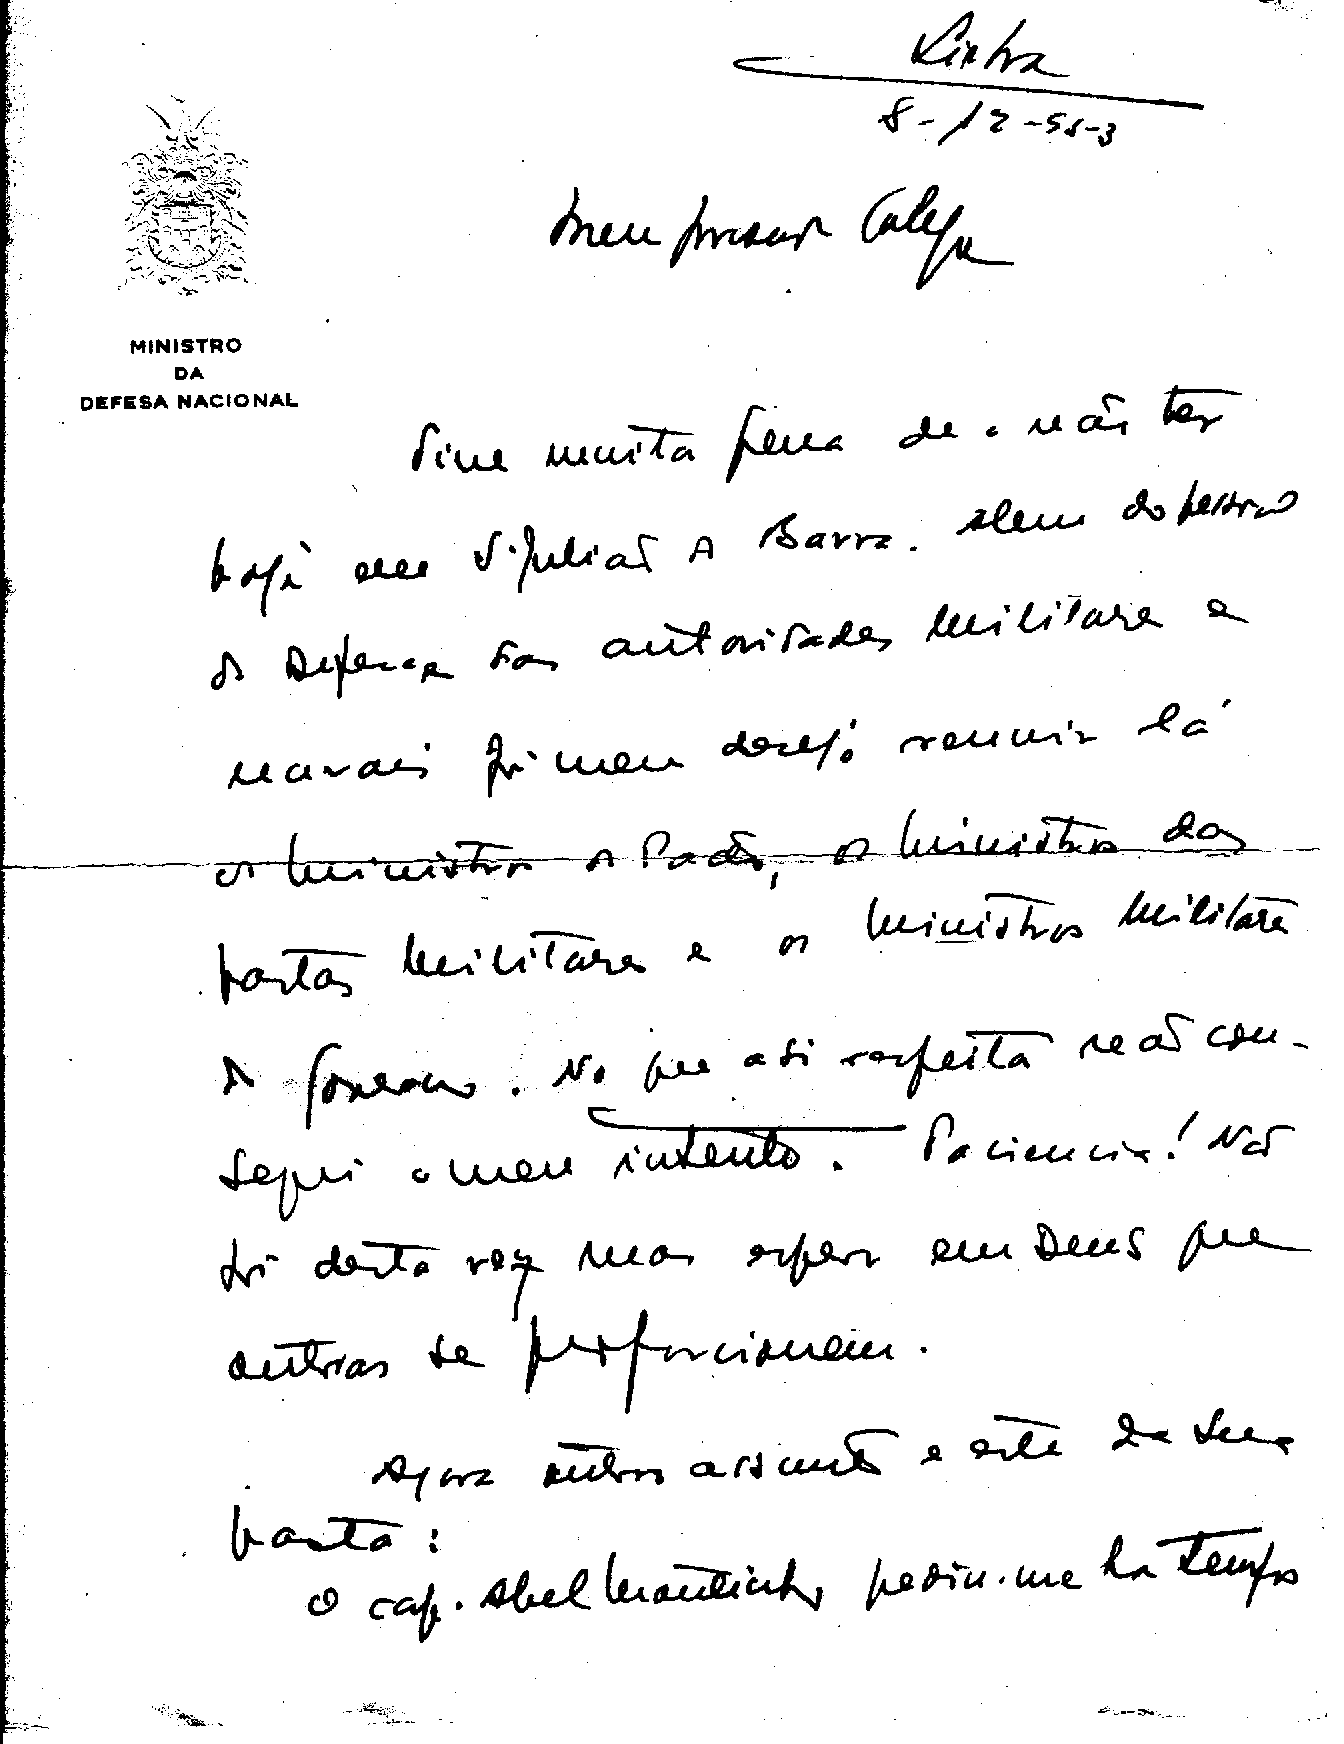 Sintra
8-12-953
Meu prezado Colega
MINISTRO
DA
DEFESA NACIONAL
Tive muita pena de o não ter
hoje em S. Julião da Barra. Alem do pessoal
da Defesa das autoridades militares e
navais foi meu desejo reunir lá
os ministros do Pacto, os ministros das
pastas militares e os ministros militares
do Governo. No que a si respeita não con-
segui o meu intento. Paciencia! Não
foi desta vez mas espero em Deus que
outras se proporcionem.
Agora outro assunto e este da sua
pasta:
O cap. Abel Moutinho pediu-me ha tempos